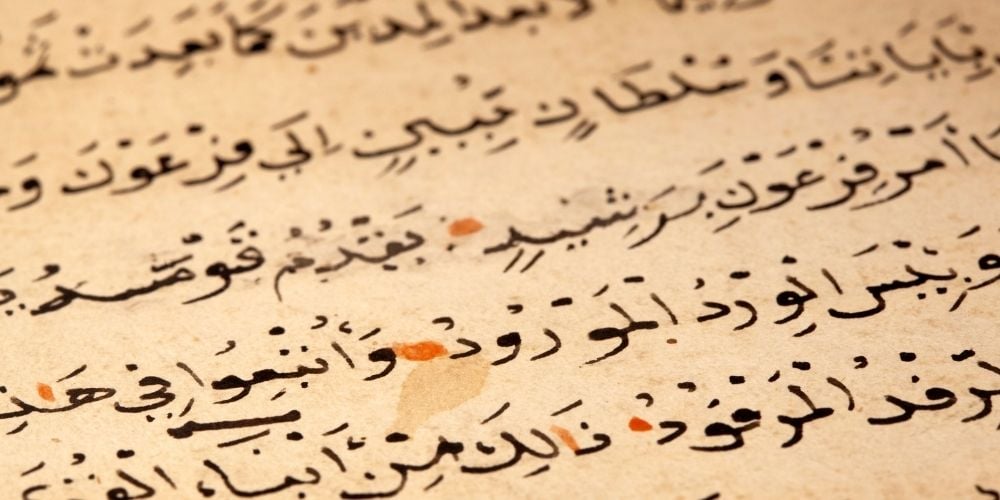 بُعْدًا لِمَدْيَنَ كَمَا بَعِدَتْ ثَمُو
بِايَاتِنَا وَسُلْطَانٍ مُّبِينٍ اِلَي فِرْعَوْنَ وَ
اَمْرُ فِرْعَوْنَ بِرَشِيدٍ يَقْدُمُ قَوْمَهُ
وَبِيْسَ الْوِرْدُ الْمَوْرُودُ وَاُتْبِعُوا فِي هَذِ
الرِّفْدُ الْمَرْفُودُ ذَالِكَ مِنْ اَنْبَاءِ الْقُرَ